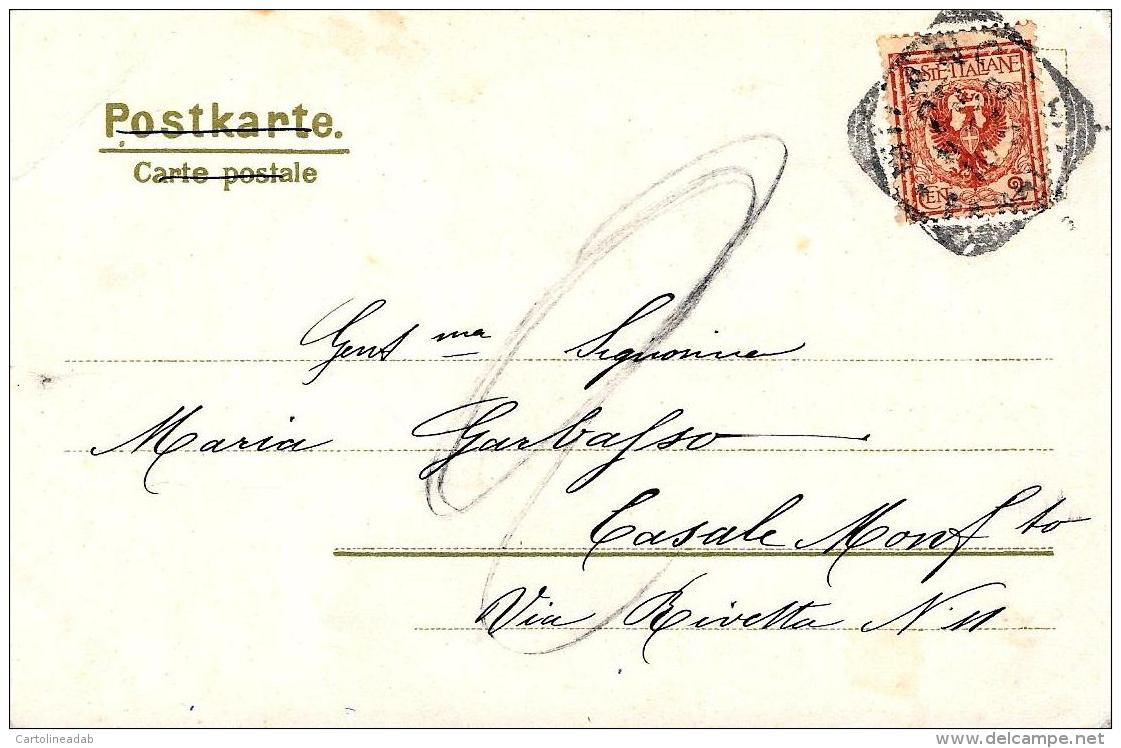 Postkarte.
Carte postale
POSTE·ITALIANE
CENT 2
Gent ma Signorina
Maria Garbasso
Casale Monf to
Via Rivetta N 11
Cartolineadab
www.delcampe.net